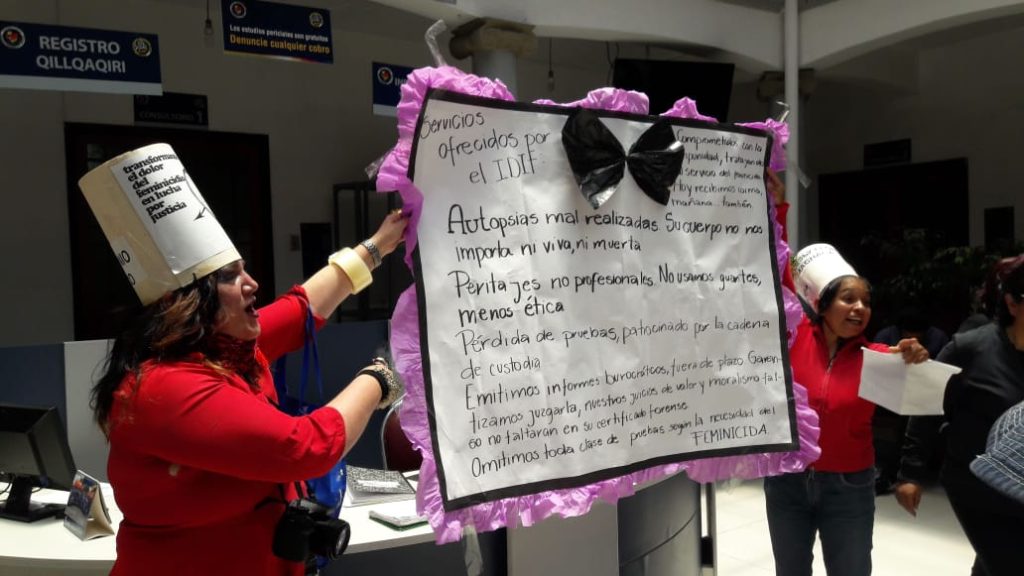 REGISTRO
QILLQAQIRI
Los estudios periciales son gratuitos
Denuncie cualquier cobro
CONSULTORIO 1
transformamos
el dolor
del
feminicidio
en lucha
por
justicia
Servicios
ofrecidos por
el IDIF:
Comprometidos con la
impunidad, trabajamos
al servicio del feminicida
Hoy recibimos coima,
mañana... también.
Autopsias mal realizadas. Su cuerpo no nos
importa ni viva, ni muerta
Peritajes no profesionales. No usamos guantes,
menos ética
Pérdida de pruebas, patocinado por la cadena
de custodia
Emitimos informes burocráticos, fuera de plazo. Garan-
tizamos juzgarla, nuestros juicios de valor y moralismo fal-
so no faltaran en su certificado forense.
Omitimos toda clase de pruebas según la necesidad del
FEMINICIDA.